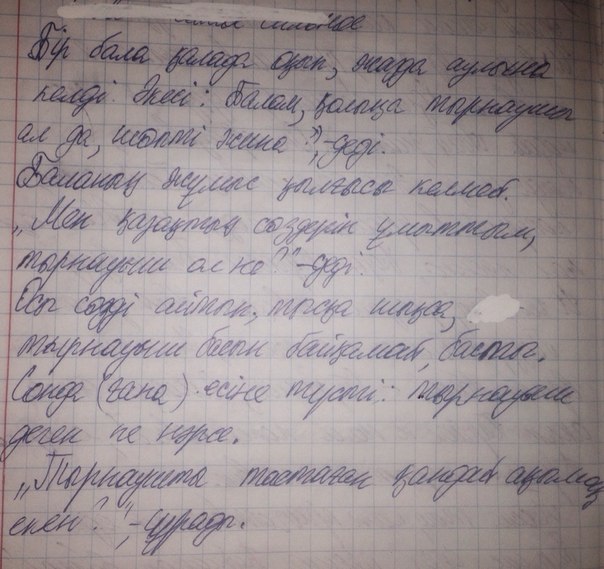 Бір бала қалада оқып, жазда аулына
келді. Әкесі: Балам, қолыңа тырнауышты
ал да, шөпті жина?", -деді.
Баланың жұмыс қылғысы келмеді.
„Мен қазақтың сөздерін ұмыттым,
тырнауыш ол не?" -деді.
Осы сөзді айтып, тысқа шықса,
тырнауыш басын байқамай, басты.
Сонда (ғана) есіне түсті: тырнауыш
деген не нәрсе.
„Тырнауышты тастаған қандай ақымақ
екен?", -ұрады.